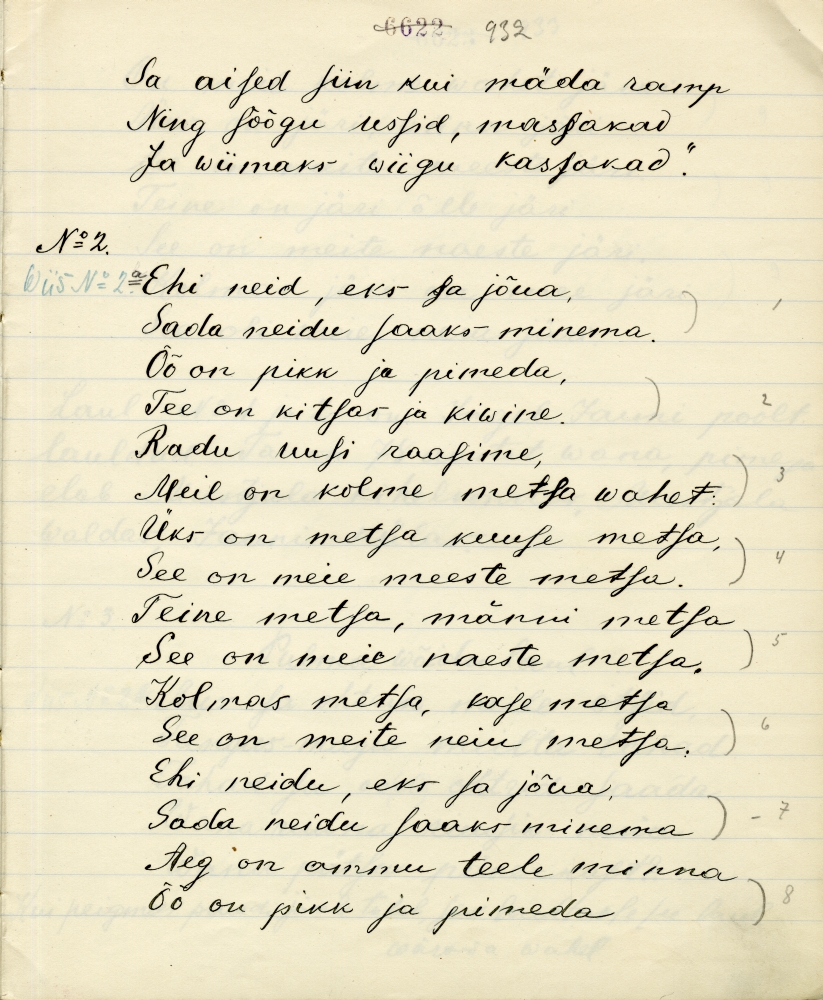 6622 932
Sa aised siin kui mäda ramp
Ning sõõgu ussid, massakad
Ja wiimaks wiigu kassakad".
№ 2.
Wiis № 2.a Ehi neid, eks sa jõua,
Sada neidu saaks minema. ) 1
Öö on pikk ja pimeda,
Tee on kitsas ja kiwine. ) 2
Radu uusi raasime,
Meil on kolme metsa wahet: ) 3
Üks on metsa kuuse metsa,
See on meie meeste metsa. ) 4
Teine metsa, männi metsa
See on meie naeste metsa. ) 5
Kolmas metsa, kase metsa
See on meite neiu metsa. ) 6
Ehi neidu, eks sa jõua,
Sada neidu saaks minema ) - 7
Aeg on ammu teele minna
Öö on pikk ja pimeda ) 8